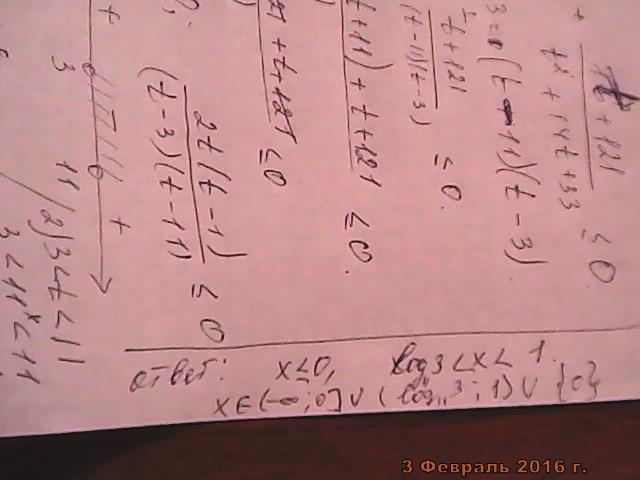 + t + 121 / t² + 14t + 33 ≤ 0
3 = 0 (t - 11)(t - 3)
t + 121 / (t - 11)(t - 3) ≤ 0.
t + 11) + t + 121 ≤ 0.
+ t + 121 ≤ 0
2t(t - 1) / (t - 3)(t - 11) ≤ 0
+ +
3 11
2) 3 < t < 11
3 < 11ˣ < 11
ответ: x ≤ 0, log₁₁3 < x < 1.
x ∈ (-∞; 0] ∪ (log₁₁3; 1) ∪ {0}
3 Февраль 2016 г.